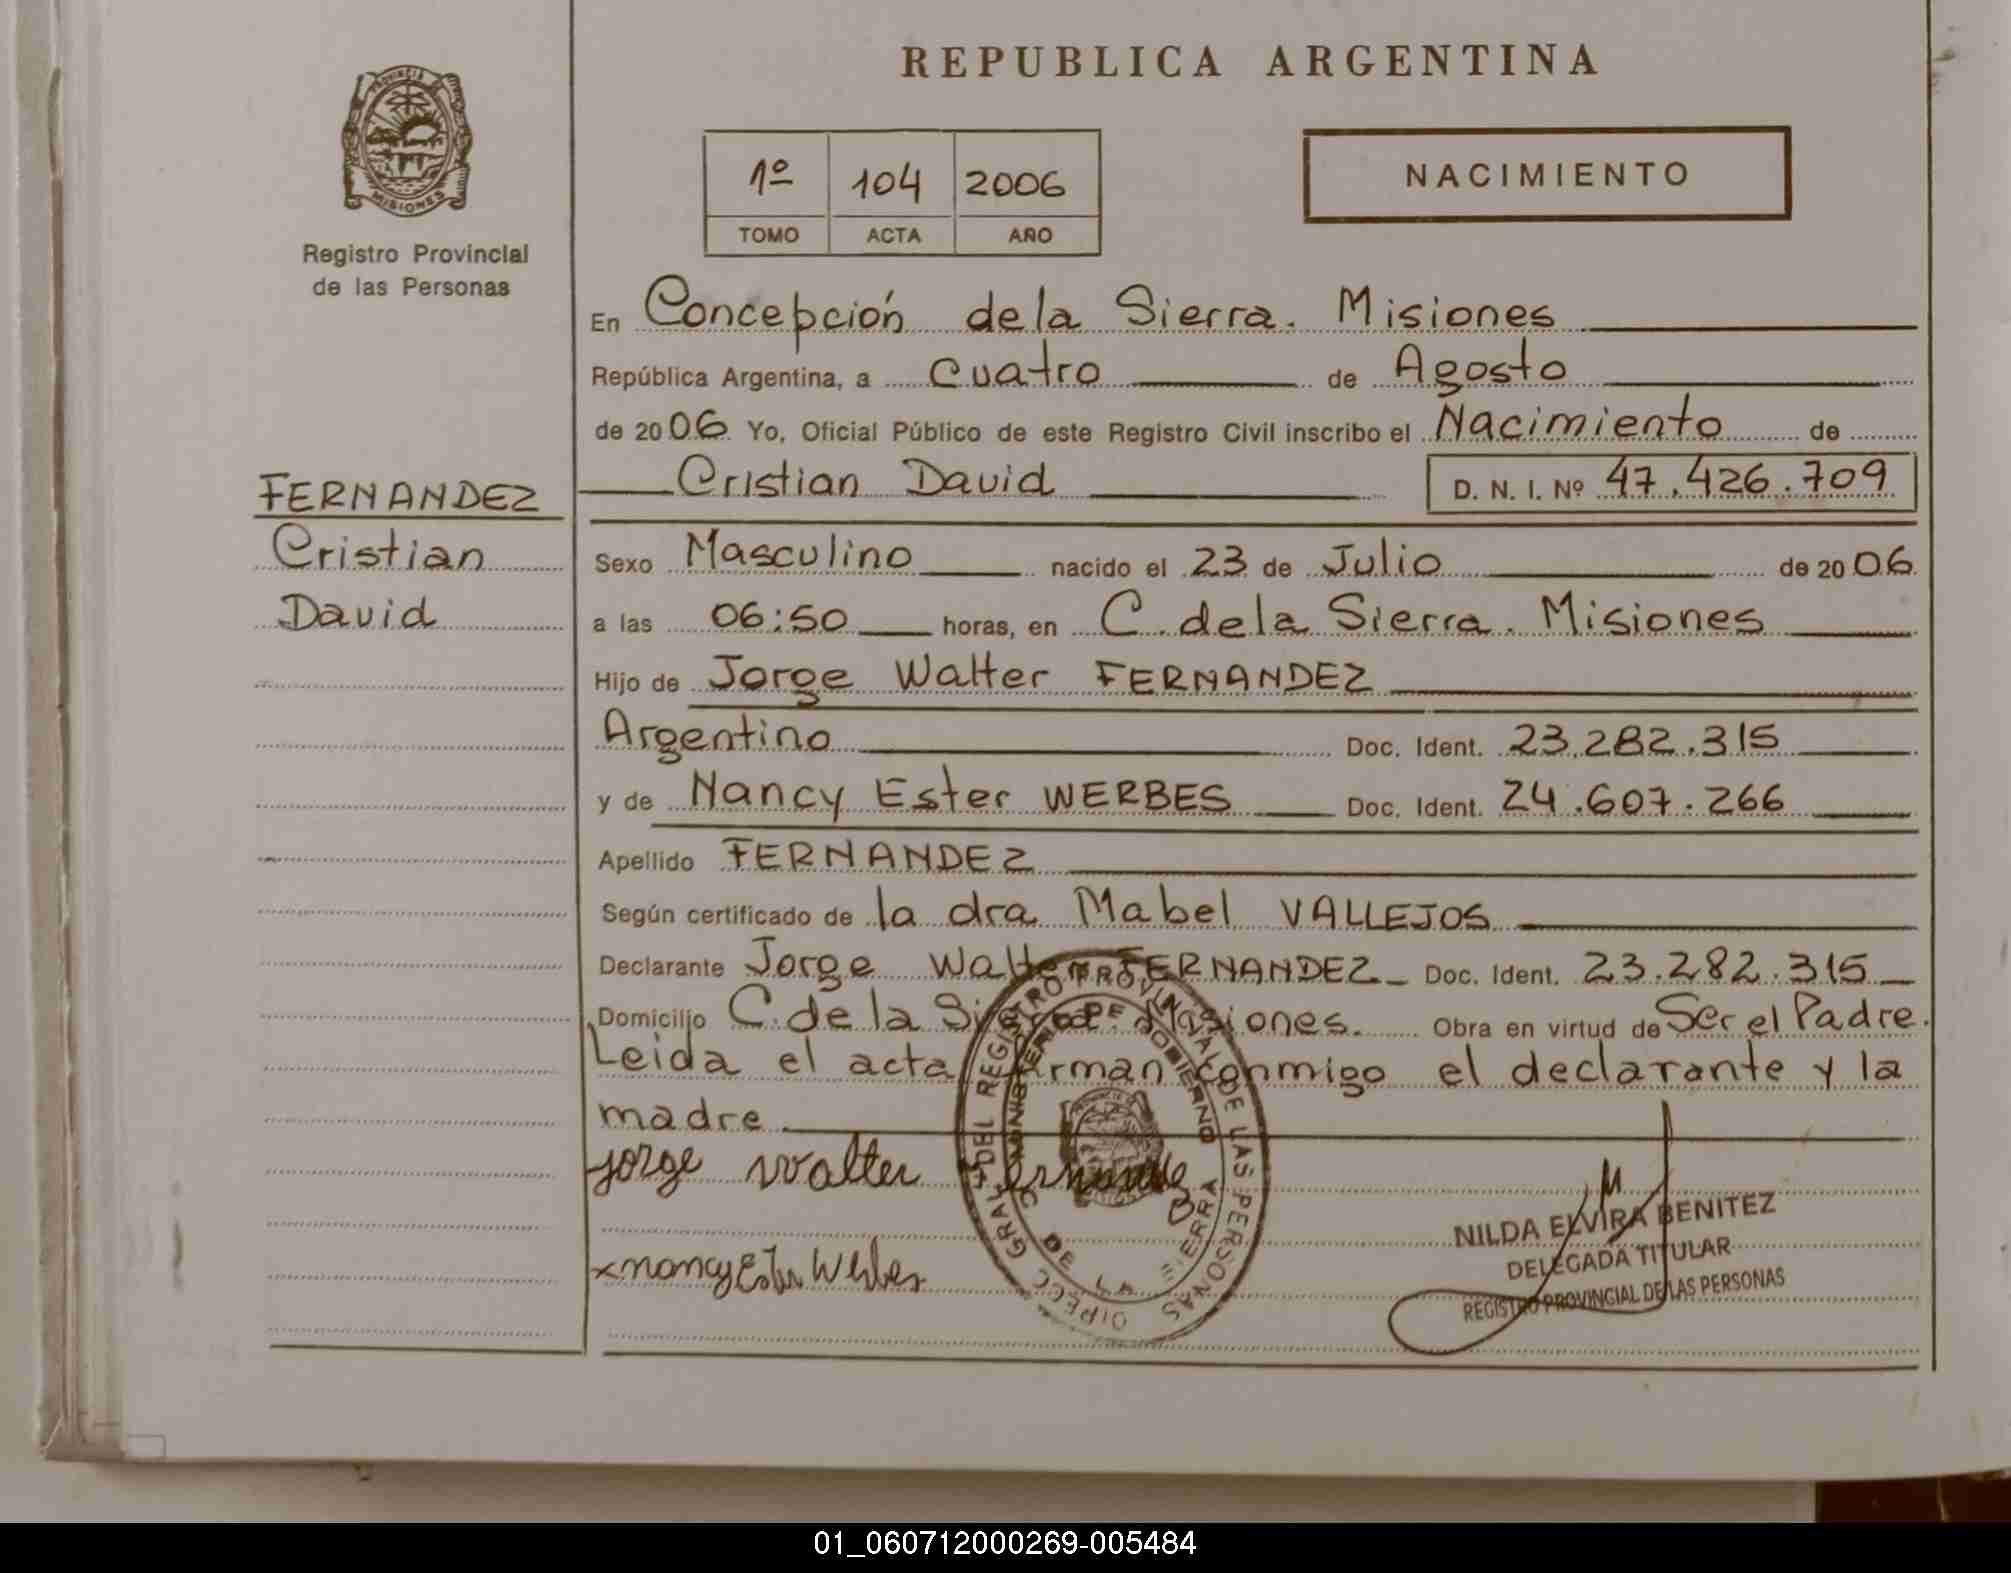 REPUBLICA ARGENTINA
PROVINCIA DE
MISIONES
Registro Provincial
de las Personas
1º 104 2006
TOMO ACTA AÑO
NACIMIENTO
En Concepción de la Sierra. Misiones
República Argentina, a cuatro de Agosto
de 2006. Yo, Oficial Público de este Registro Civil inscribo el Nacimiento de
Cristian David D. N. I. Nº 47.426.709
FERNANDEZ
Cristian
David
Sexo Masculino nacido el 23 de Julio de 2006.
a las 06:50 horas, en C. de la Sierra. Misiones
Hijo de Jorge Walter FERNANDEZ
Argentino Doc. Ident. 23.282.315
y de Nancy Ester WERBES Doc. Ident. 24.607.266
Apellido FERNANDEZ
Según certificado de la dra Mabel VALLEJOS
Declarante Jorge Walter FERNANDEZ Doc. Ident. 23.282.315
Domicilio C. de la Sierra. Misiones. Obra en virtud de Ser el Padre.
Leida el acta firman conmigo el declarante y la
madre
Jorge Walter Fernandez
x nancy Ester Werbes
DIRECC. GRAL. DEL REGISTRO PROVINCIAL DE LAS PERSONAS
MINISTERIO DE GOBIERNO
C. DE LA SIERRA
NILDA ELVIRA BENITEZ
DELEGADA TITULAR
REGISTRO PROVINCIAL DE LAS PERSONAS
01_060712000269-005484